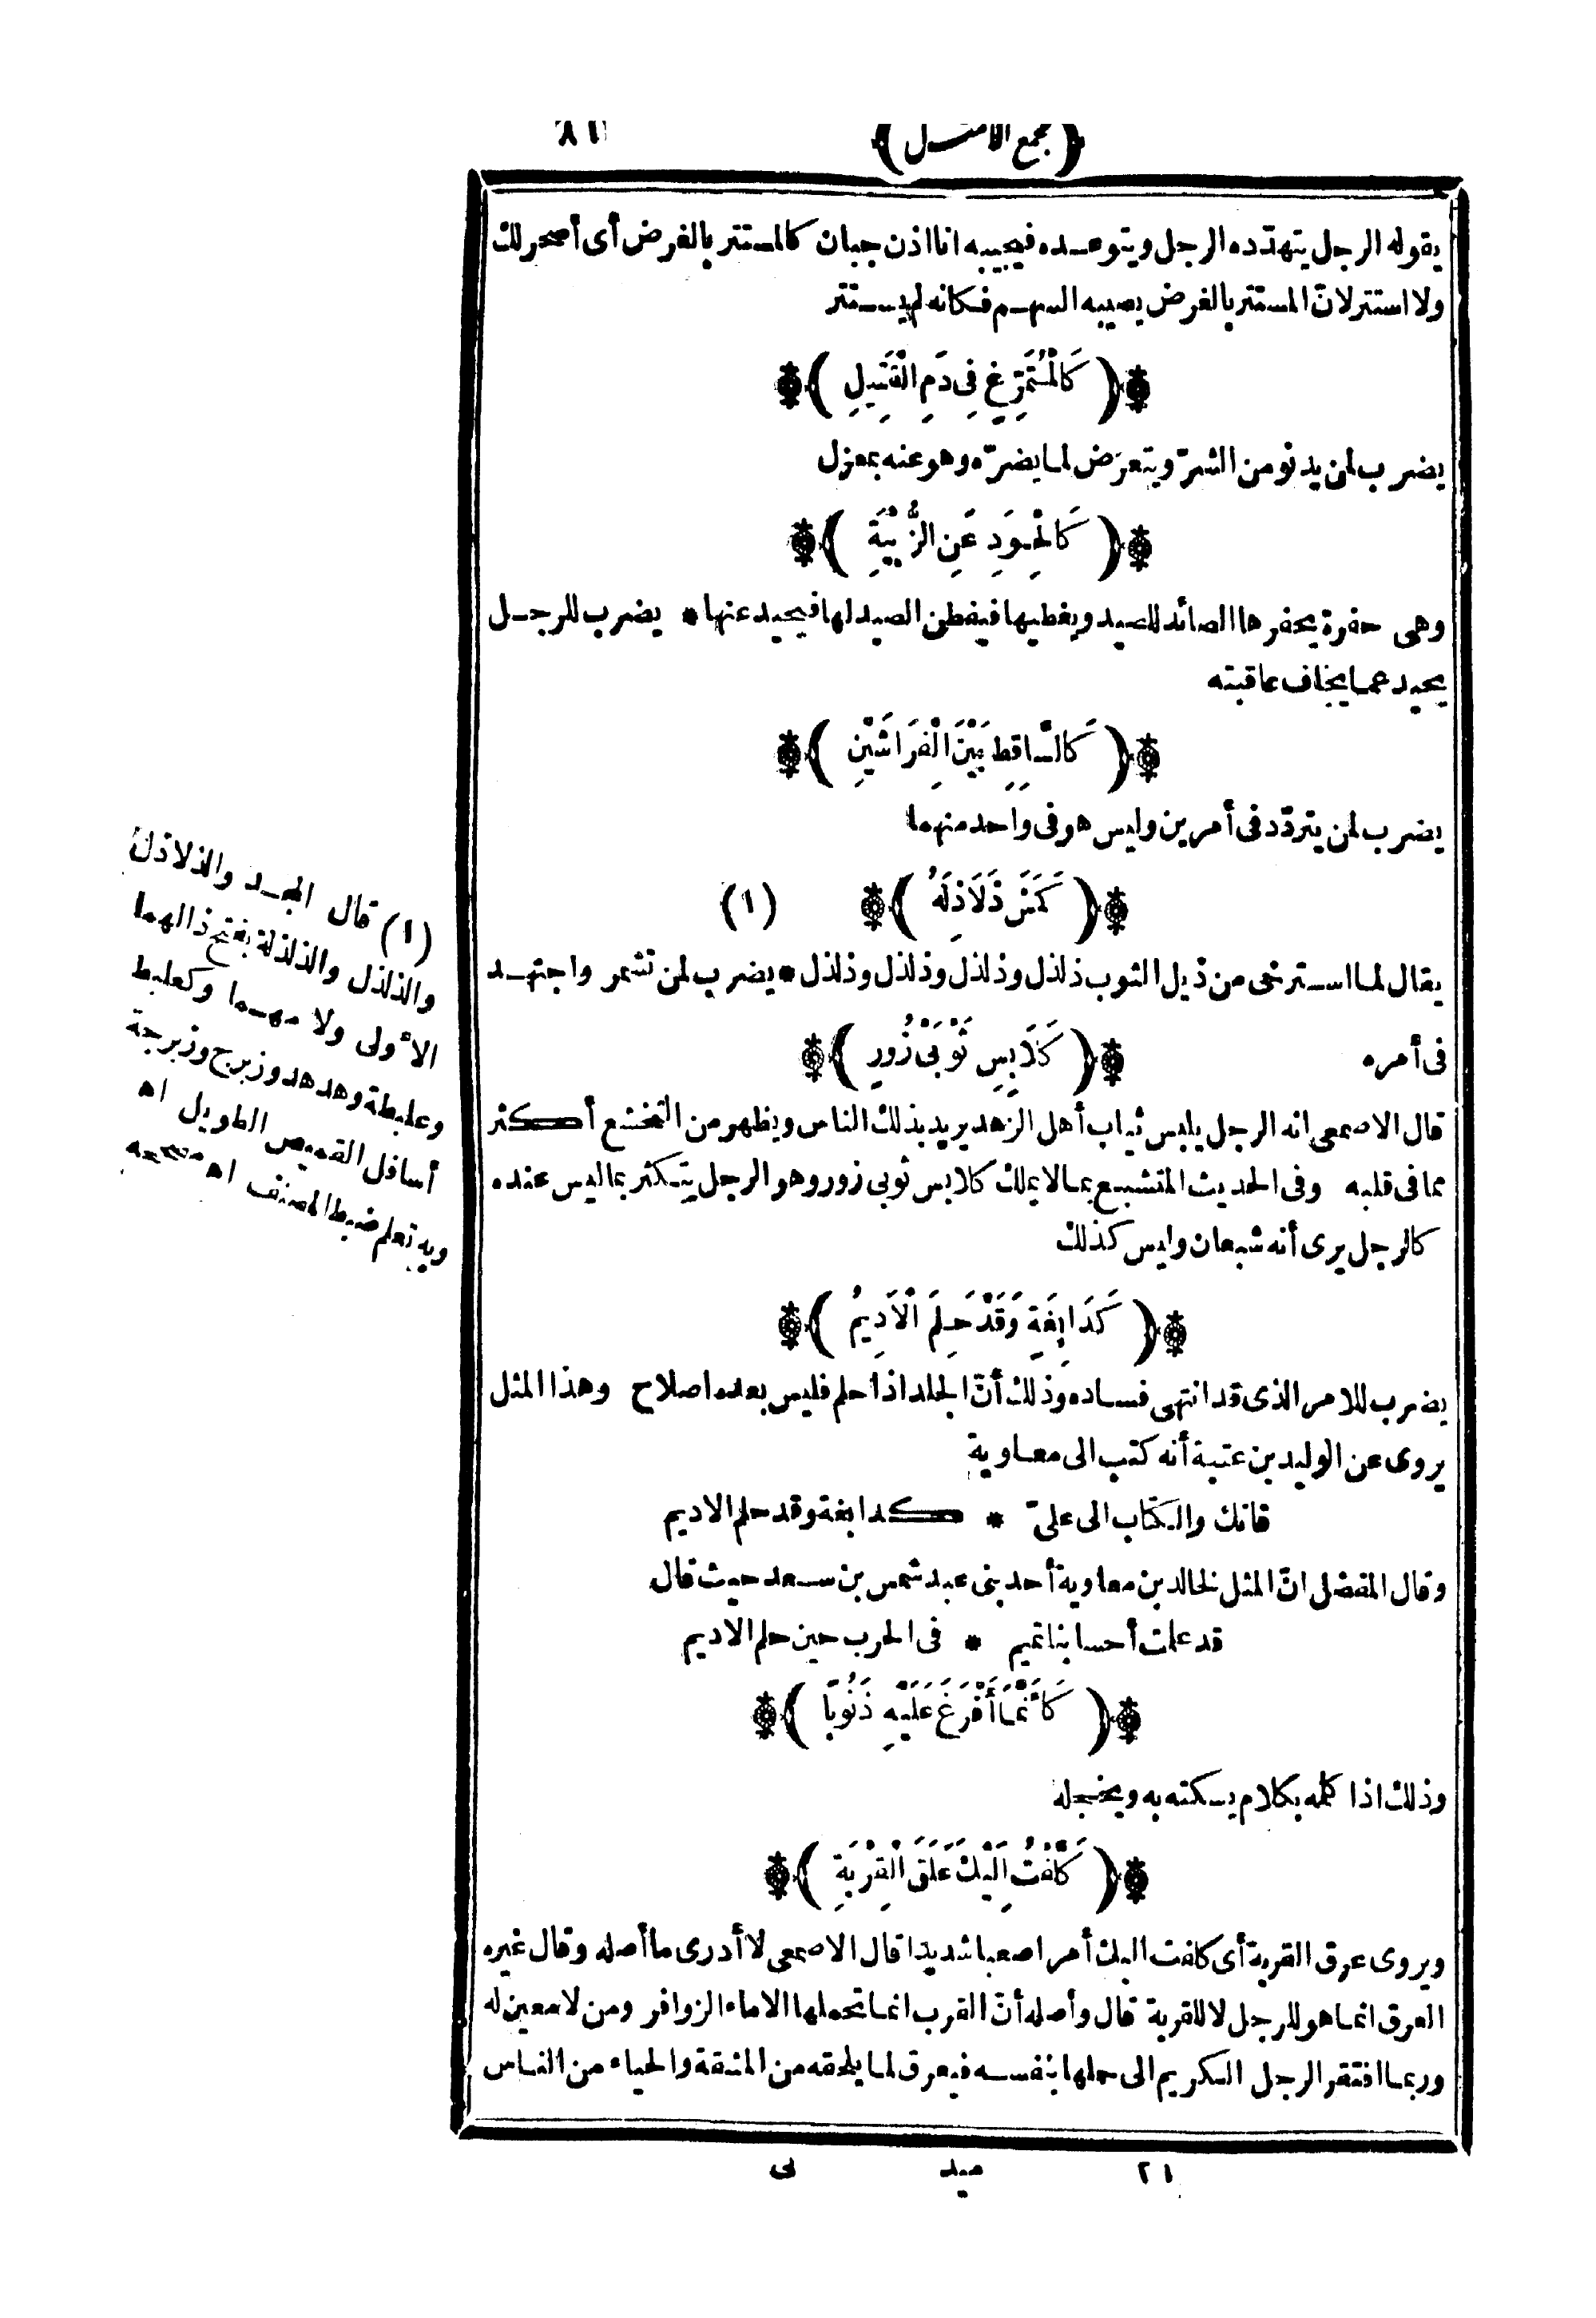 ﴿ مجمع الامثال ﴾ ٨١
يقوله الرجل يتهدّده الرجل ويتوعده فيجيبه انا اذن جبان كالمستتر بالغرض أى أصحر لك
ولا استتر لانّ المستتر بالغرض يصيبه السهم فكانه لم يستتر
﴿ كَالْمُتَمَرِّغِ فِى دَمِ الْقَتِيلِ ﴾
يضرب لمن يدنو من الشرّ ويتعرّض لما يضرّه وهو عنه بمعزل
﴿ كَالْحَوَدِ عَنِ الزُّبْيَةِ ﴾
وهى حفرة يحفرها الصائد للصيد ويغطيها فيفطن الصيد لها فيحيد عنها * يضرب للرجل
يحيد عما يخاف عاقبته
﴿ كَالسَّاقِطِ بَيْنَ الْفِرَاشَيْنِ ﴾
يضرب لمن يتردّد فى أمرين وليس هو فى واحد منهما
﴿ كَمَشَ ذَلَاذِلَهُ ﴾ (١)
يقال لما استرخى من ذيل الثوب ذلذل وذلذل وذلذل وذلذل * يضرب لمن تشمر واجتهد
فى أمره
﴿ كَلَابِسِ ثَوْبَىْ زُورٍ ﴾
قال الاصمعى انه الرجل يلبس ثياب أهل الزهد يريد بذلك الناس ويظهر من التخشع أكثر
مما فى قلبه وفى الحديث المتشبع بما لا يملك كلابس ثوبى زور وهو الرجل يتكثر بما ليس عنده
كالرجل يرى أنه شبعان وليس كذلك
﴿ كَدَابِغَةٍ وَقَدْ حَلِمَ الْاَدِيمُ ﴾
يضرب للامر الذى قد انتهى فساده وذلك أنّ الجلد اذا حلم فليس بعده اصلاح وهذا المثل
يروى عن الوليد بن عتبة أنه كتب الى معاوية
فانك والكتاب الى علىّ * كدابغة وقد حلم الاديم
وقال المفضل انّ المثل لخالد بن معاوية أحد بنى عبد شمس بن سعد حيث قال
قد علمت أحسابنا تميم * فى الحرب حين حلم الاديم
﴿ كَأَنَّمَا أَفْرَغَ عَلَيْهِ ذَنُوبًا ﴾
وذلك اذا كلمه بكلام يسكته به ويخجله
﴿ كَلِفْتُ اِلَيْكَ عَلَقَ الْقِرْبَةِ ﴾
ويروى عرق القربة أى كلفت اليك أمرا صعبا شديدا قال الاصمعى لا أدرى ما أصله وقال غيره
العرق انما هو للرجل لا للقربة قال وأصله أنّ القرب انما تحملها الاماء الزوافر ومن لا معين له
وربما افتقر الرجل الكريم الى حملها بنفسه فيعرق لما يلحقه من المشقة والحياء من الناس
(١) قال المجد والذلاذل
والذلذل والذلذلة بفتح ذالهما
الأولى ولا مهما وكعلبط
وعلبطة وهدهد وزبرج وزبرجة
أسافل القميص الطويل اه
وبه تعلم ضبط المصنف اه مصححه
٢١ ميد نى